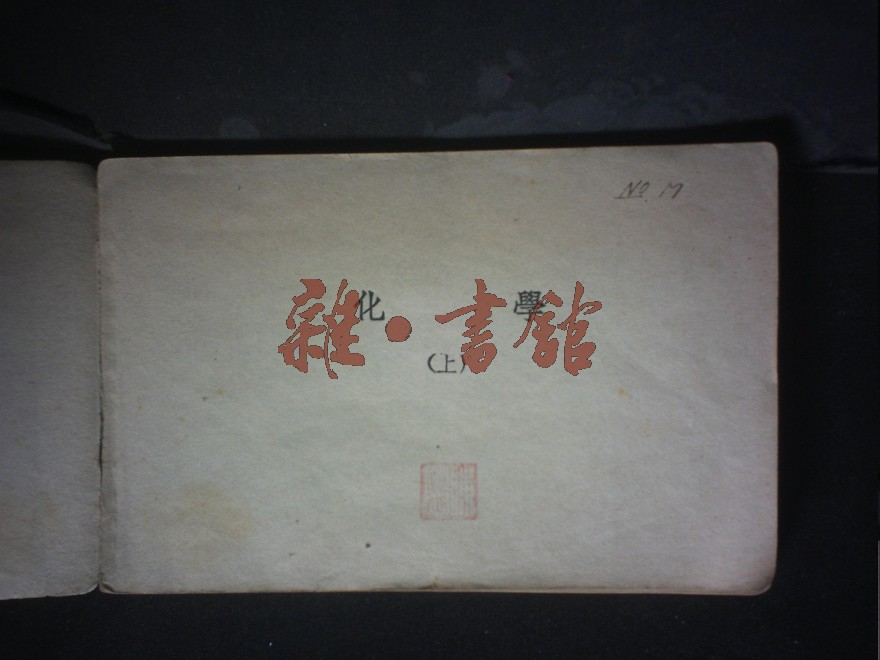 No. 17
化 學
雜·書館
(上)